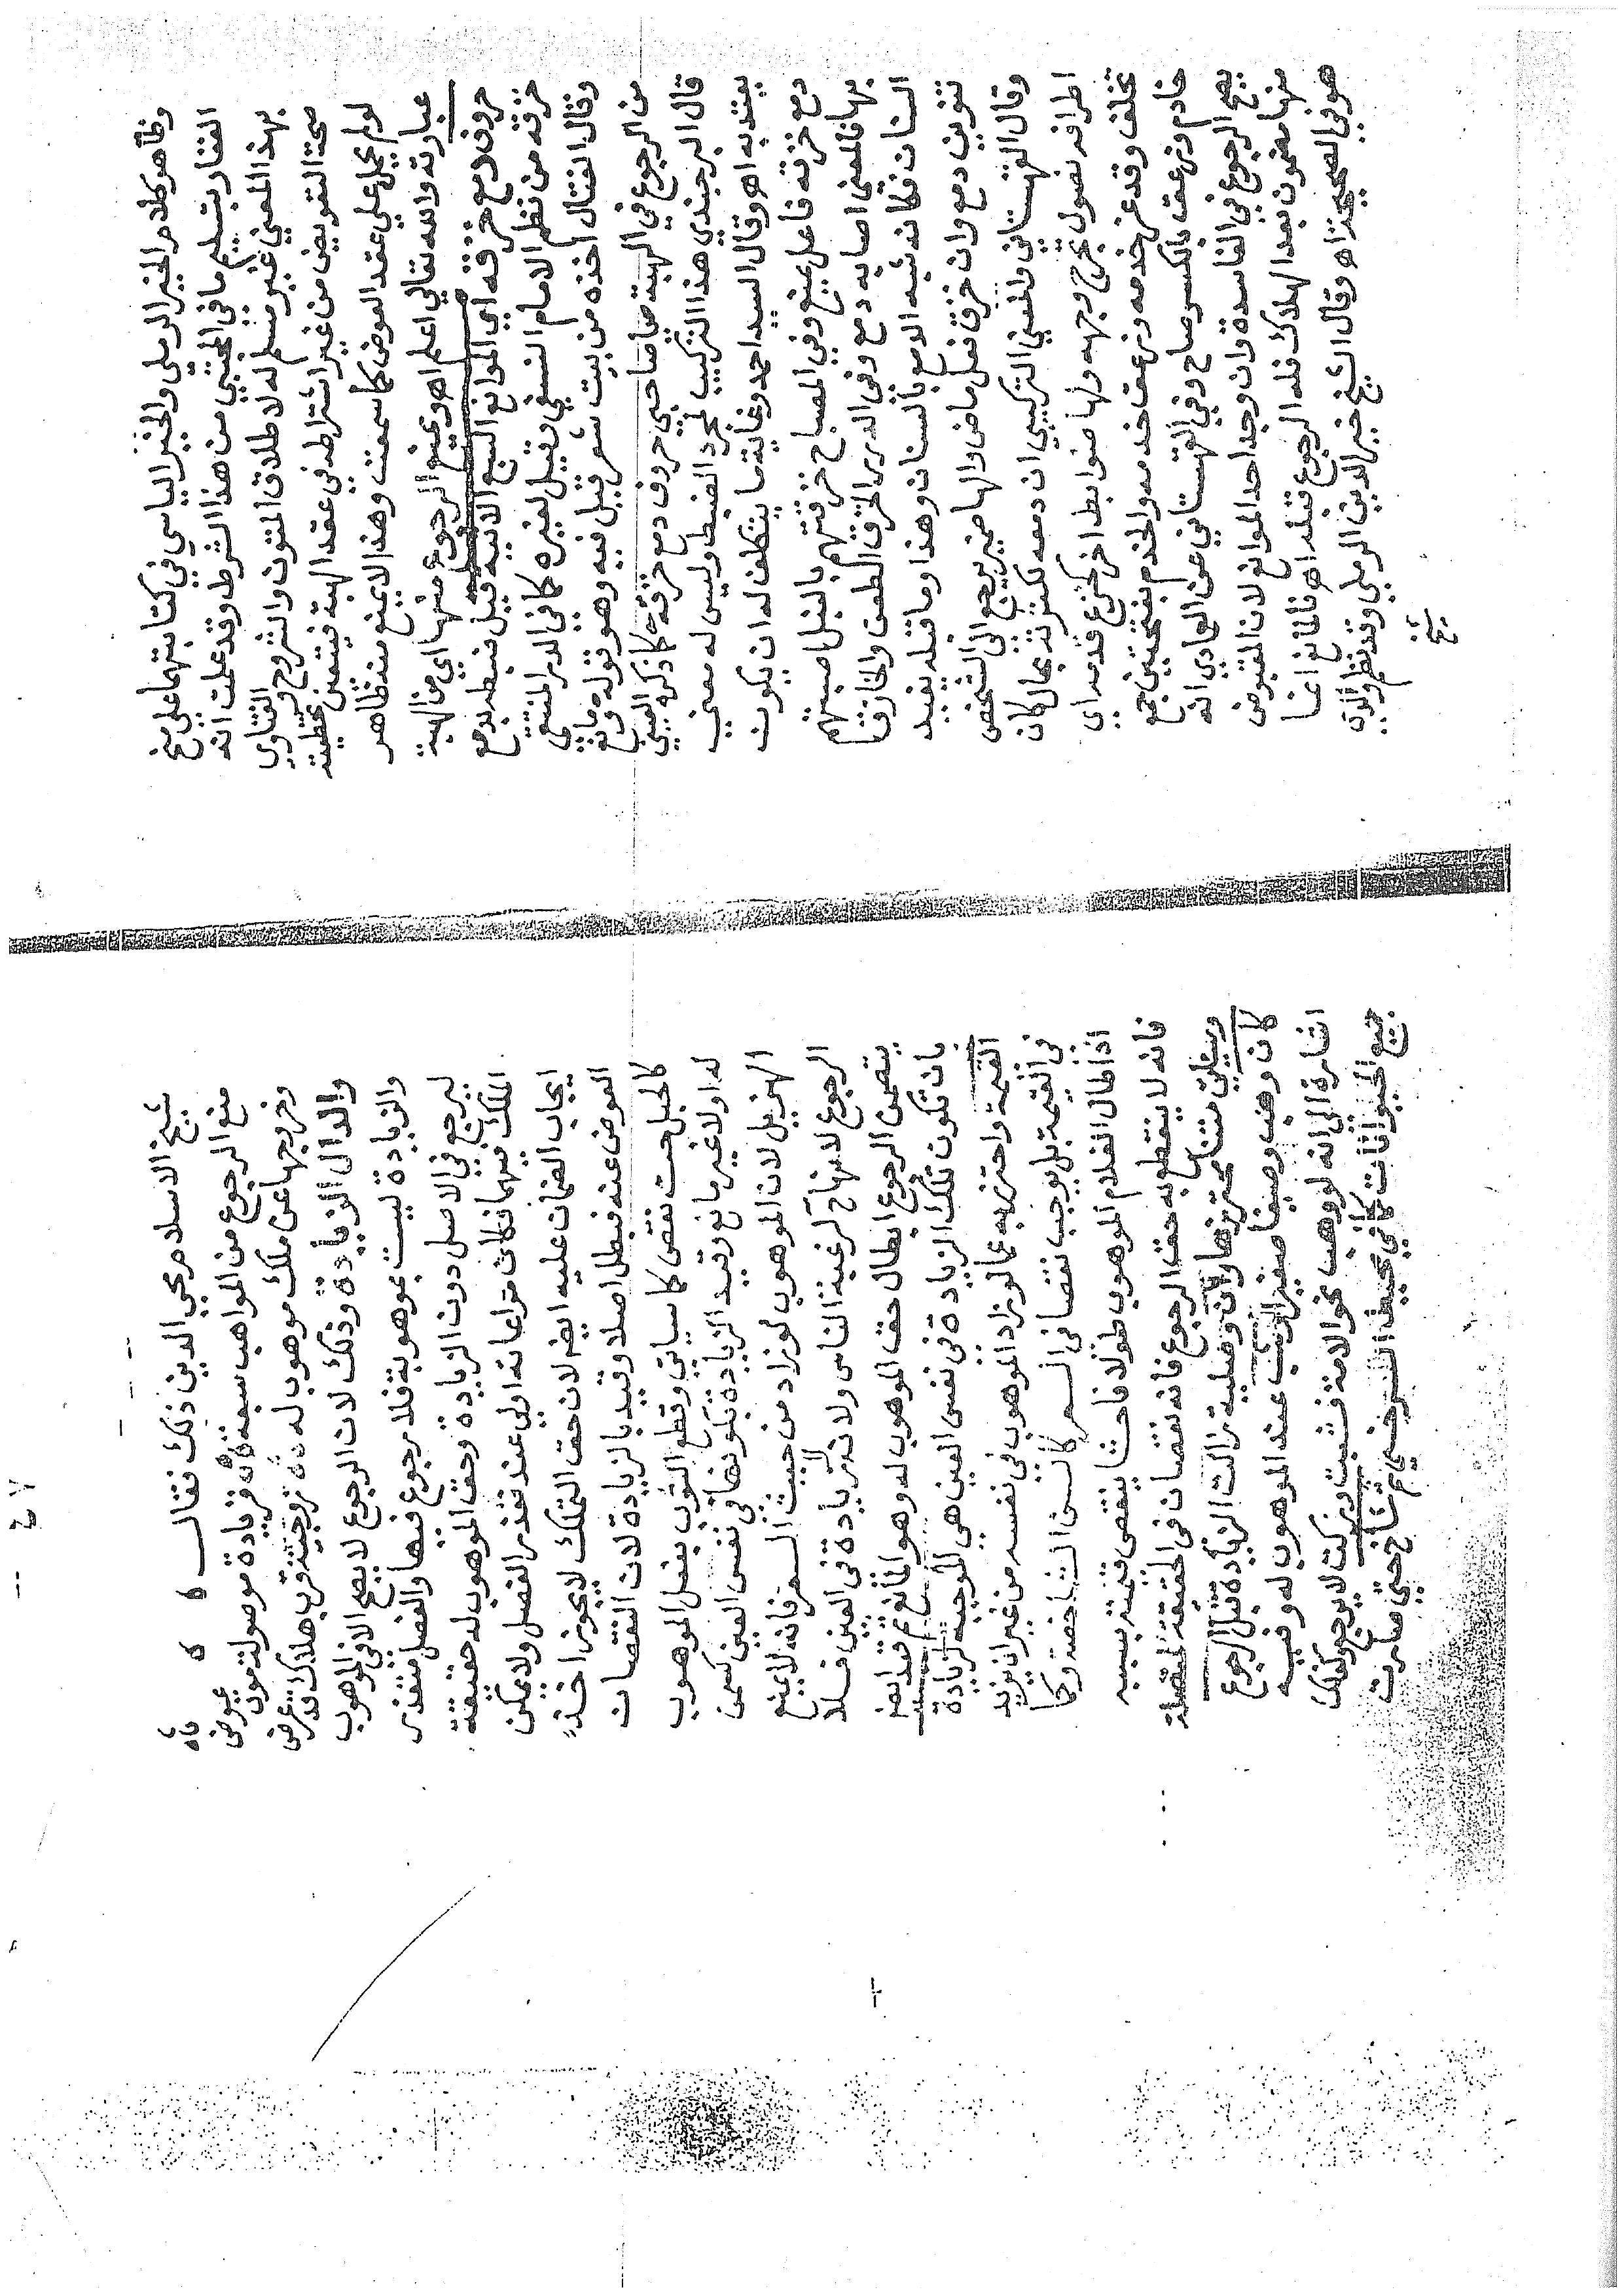 وظاهر كلام الخير الرملي والخير الياسي في كتابتهما على منح
الغفار بتسليم ما في المجتبي من هذا الشرط وقد علمت انه
بهذا المعني غير مسلم له لاطلاق المتون والشروح والفتاوي
صحة التعويض من غير اشتراطه في عقد الهبة فيتعين تخطية
لو لم يحمل علي عقد العوض كما سمعت وهذا لا يمنع منه ظاهر
عبارته والله تعالي اعلم اه ويمنع الرجوع منها اي من الهبة
حروف دمع خزقه اي الموانع السبع الاتيه قيل ضبطه بدمع
خزقه من نظم الامام النسفي وقيل لغيره كما في الدر المنتقى
وقال الفتال اخذه من بيت شعر قيل فيه وهو قوله ومانع
من الرجوع في الهبة يا صاحبي حروف دمع خزقه كما ذكره العيني
قال البرجندي هذا التركيب لمجرد الضبط وليس له معني
يعتد به اه وقال السيد احمد وغاية ما يتكلف له ان يكون
دمع خزقه فاعل يمنع وفي المصباح خزقتهم بالنبل اصبتهم
بها فالمعنى اصابه دمع وفى الدرر الخزق الطعن والخازق
السنان فكانه شبه الدمع بالسنان وهذا وما قبله يفيد
تنوين دمع وان خزق فعل ماض والها ضمير يرجع الى الشخص
وقال القهستاني والمعني التركيبي ان دمعه لكثرته بحال كان
اطرافه نصول تجرح وجهه ولها ضوابط اخر كخزع قدمه اي
تخلف وقد عز خدمه وزعق خدمه والخدم بفتحتين جمع
خادم وزعق بالكسر صاح وفي القهستاني عن العمادي انه
يصح الرجوع في الفاسدة وان وجد احد الموانع لان المقبوض
منها مضمون بعد الهلاك فله الرجوع قبله اه فالمانع انما
هو في الصحيحة اه وقال الشيخ خير الدين الرملي وقد نظم والده
شيخ
شيخ الاسلام محيي الدين ذلك فقال
منع الرجوع من المواهب سبعة فزيادة موصولة موت عوض
وخروجها عن ملك موهوب له زوجية قرب هلاك قد عرض
والدال الزيادة وذلك لان الرجوع لا يصح الا في الموهوب
والزيادة ليست بموهوبة فلا رجوع فيها والفصل متعذر
ليرجع في الاصل دون الزيادة وحق الموهوب له حقيقة
الملك فيهما فكان مراعاته اولى عند تعذر الفصل ولا يمكن
ايجاب الضمان عليه ايضا لان حق التملك لا يجوز اخذ
العوض عنه فبطل اصلا وقيد بالزيادة لان النقصان
كالحبل حيث نقص كما سياتي وقطع الثوب بفعل الموهوب
له او لا غير مانع وقيد الزيادة بكونها في نفس العين كسمن
الهزيل لان الموهوب لو زاد من حيث السعر فانه لا يمنع
الرجوع لانها كرغبة الناس ولانه لا زيادة في العين فلا
يتضمن الرجوع ابطال حق الموهوب له وهو المانع ثم قيد ايضا
بان تكون تلك الزيادة في نفس العين هي الموجبة لزيادة
القيمة واحترز به عما لو زاد الموهوب في نفسه من غير ان يزيد
في القيمة بل يوجب نقصا في السعر كالسن الشاخصة وكما
اذا طال الغلام الموهوب طولا فاحشا ينقص قيمته بسببه
فانه لا ينقطع به حق الرجوع فانه نقصان في الحقيقة المتصلة
وسياتي محترزها وان وصلية زالت الزيادة قبل الرجوع
كان وهب وصيفا صغيرا فشب عند الموهوب له وفيه
اشارة الى انه لو وهب نحو الامة فشبت وكبرت لا يرجع وكذلك
جميع الحيوانات كما في محيط السرخسي ثم شاخ حتى صارت